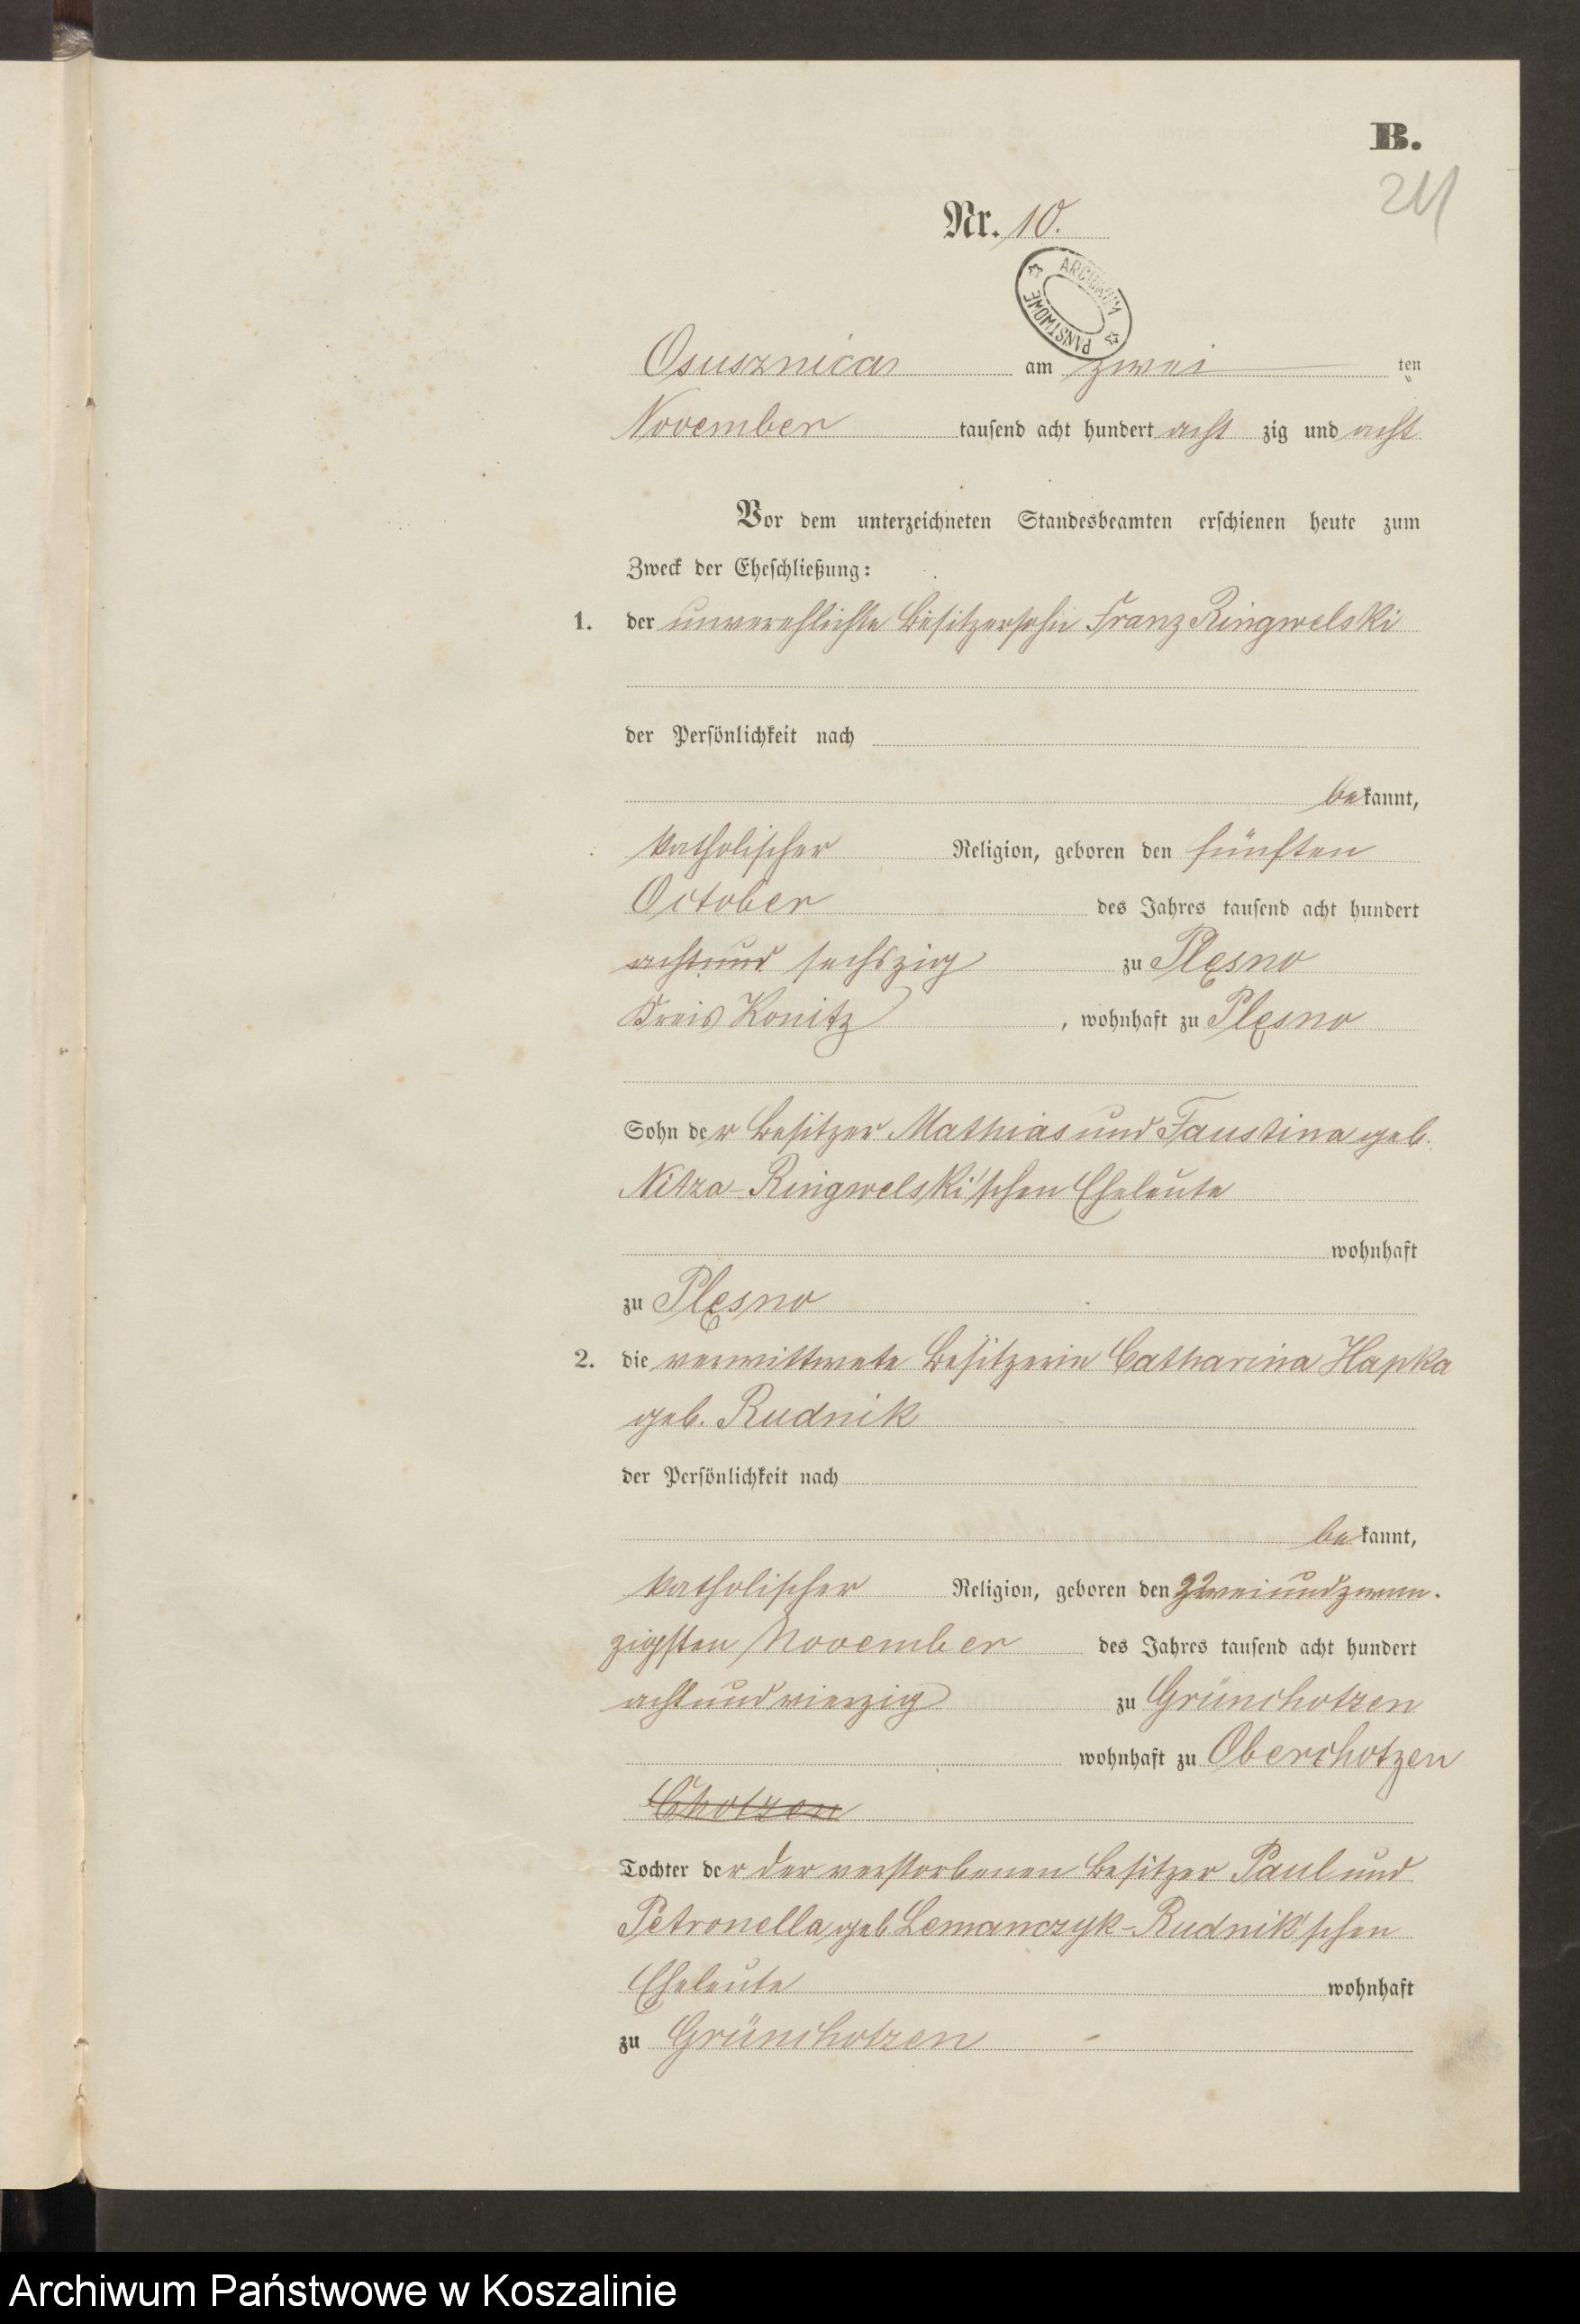 B.
211
Nr. 10.
ARCHIWUM PAŃSTWOWE
Osusznica am zwei ten
November tausend acht hundert acht zig und acht
Vor dem unterzeichneten Standesbeamten erschienen heute zum
Zweck der Eheschließung:
1. der unverehlichte Besitzersohn Franz Ringwelski
der Persönlichkeit nach
bekannt,
katholischer Religion, geboren den fünften
October des Jahres tausend acht hundert
achtund sechszig zu Plęsno
Kreis Konitz, wohnhaft zu Plęsno
Sohn der Besitzer Mathias und Faustina geb.
Nitza-Ringwelski'schen Eheleute
wohnhaft
zu Plęsno
2. die verwittwete Besitzerin Catharina Hapka
geb. Rudnik
der Persönlichkeit nach
bekannt,
katholischer Religion, geboren den zweiundzwan-
zigsten November des Jahres tausend acht hundert
achtundvierzig zu Grünchotzen
wohnhaft zu Oberchotzen
Chotzen
Tochter der der verstorbenen Besitzer Paul und
Petronella geb Lemanczyk-Rudnik'schen
Eheleute wohnhaft
zu Grünchotzen
Archiwum Państwowe w Koszalinie